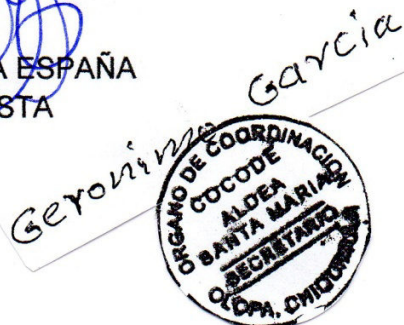 A ESPAÑA
STA
Geronimo Garcia
ORGANO DE COORDINACION
COCODE
ALDEA
SANTA MARIA
SECRETARIO
OLOPA, CHIQUIMULA